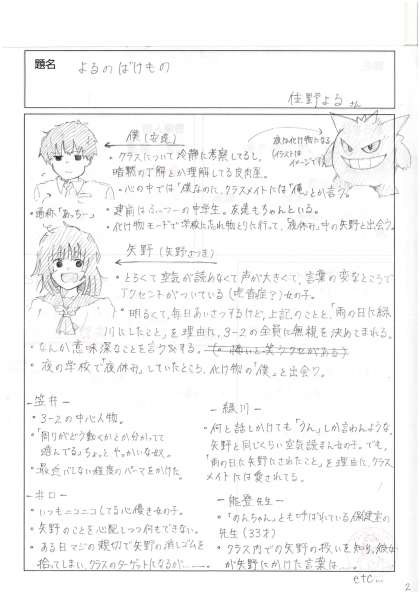 題名
よるのばけもの
住野よる さん
僕(安達)
夜は化け物になる
(イラストは
イメージです)
・クラスについて冷静に考察してるし、
暗黙の了解とか理解してる皮肉屋。
・心の中では「僕」なのに、クラスメイトには「俺」とか言う。
・通称「あっちー」
・建前はふつーの中学生。友達もちゃんといる。
・化け物モードで学校に忘れ物とりに行って、夜休み中の矢野と出会う。
矢野(矢野さつき)
・とろくて空気が読めなくて声が大きくて、言葉の変なところで
アクセントがついている(吃音症?)女の子。
・明るくて、毎日あいさつするけど、上記のことと、「雨の日に緑
川にしたこと」を理由に、3-2の全員に無視を決めてまれる。
・なんか意味深なことを言うをする。(の 怖いと笑うクセがある)
・夜の学校で「夜休み」していたところ、化け物の「僕」と出会う。
-笠井-
・3-2の中心人物。
・「周りがどう動くかとか分かってて
遊んでる」ちょっとやっかいな奴。
・最近バレない程度のパーマをかけた。
-緑川-
・何と話しかけても「うん」しか言わんような、
矢野と同じくらい空気読まん女の子。でも、
「雨の日に矢野にされたこと」を理由に、クラス
メイトには愛されてる。
-井口-
・いつもニコニコしてる心優しき女の子。
・矢野のことを心配しつつ何もできない。
・ある日マジの親切で矢野の消しゴムを
拾ってしまい、クラスのターゲットになるが……。
-能登先生-
・「のんちゃん」とも呼ばれている保健室の
先生(33才)
・クラス内での矢野の扱いを知り、彼女
が矢野にかけた言葉は……。
etc…
2